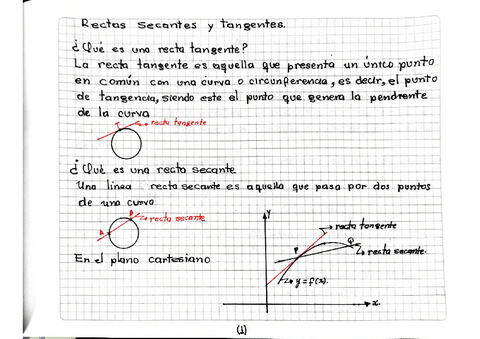 Rectas secantes y tangentes.
¿Qué es una recta tangente?
La recta tangente es aquella que presenta un único punto
en común con una curva o circunferencia, es decir, el punto
de tangencia, siendo este el punto que genera la pendiente
de la curva
recta tangente
¿Qué es una recta secante
Una linea recta secante es aquella que pasa por dos puntos
de una curva
B
recta secante
A
y
recta
tangente
P
Q
recta secante.
En el plano cartesiano
y=f(x).
x.
(1)